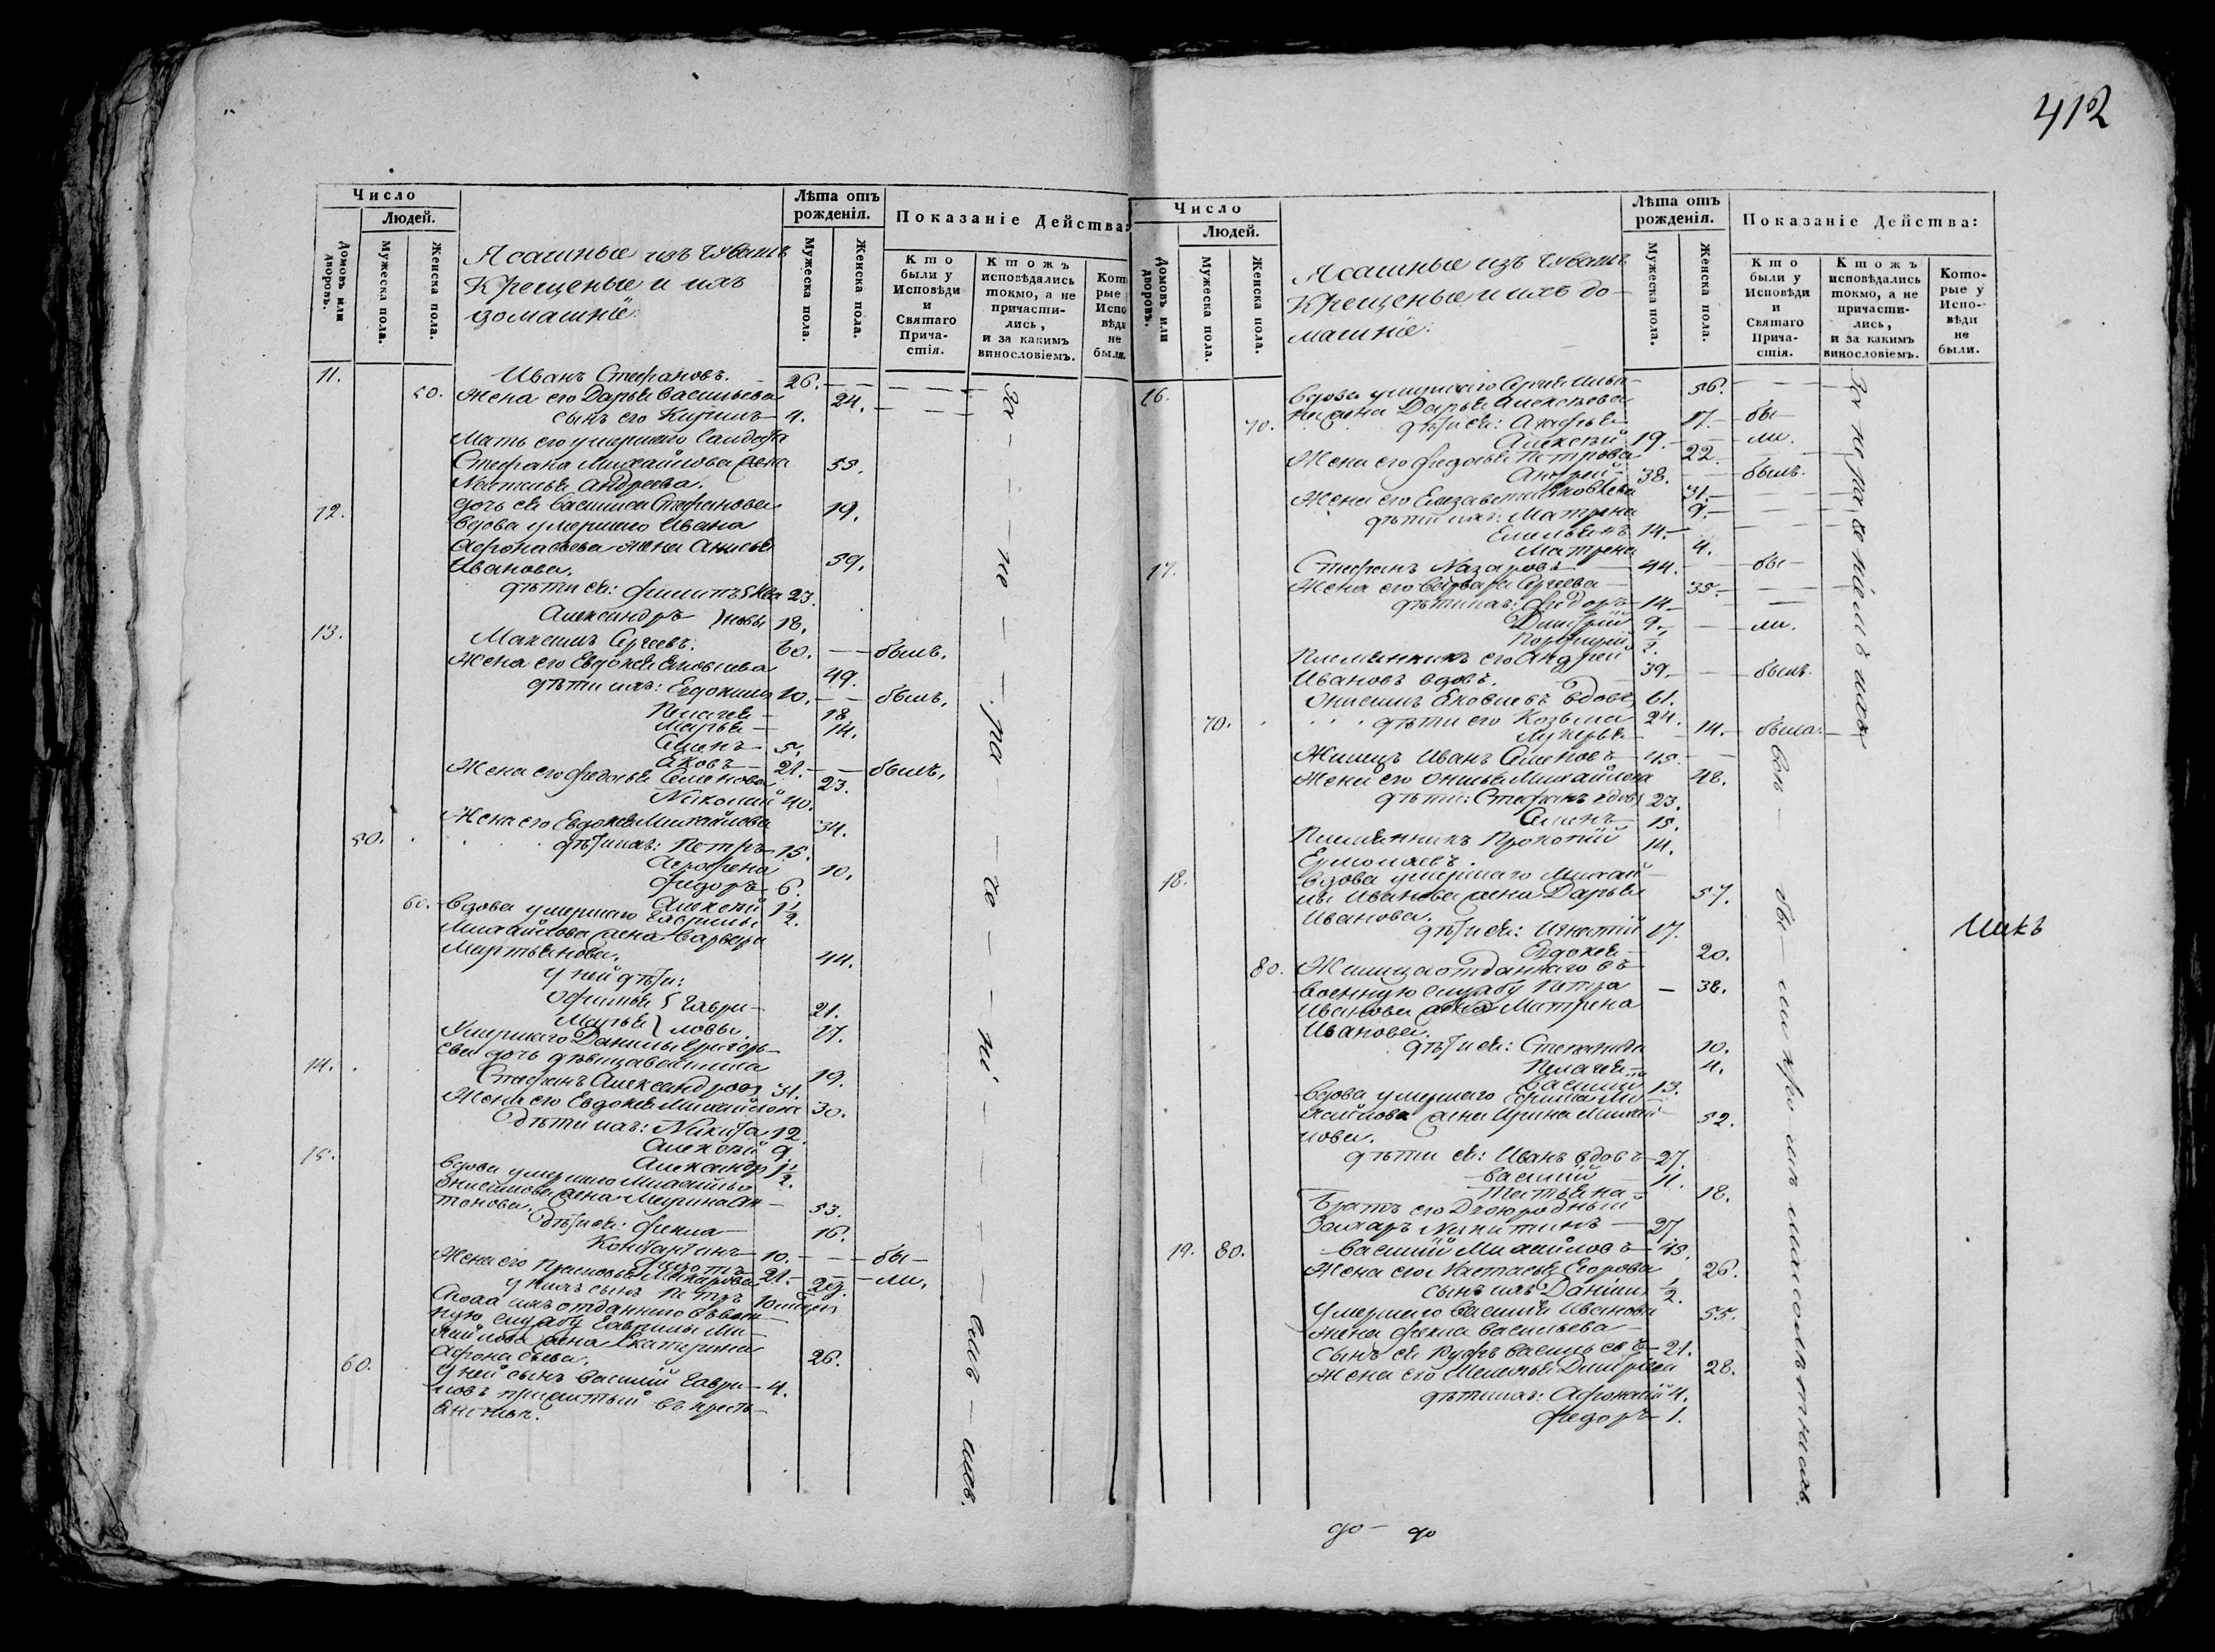 412
Число
Людей.
Домовъ или дворовъ.
Мужеска пола.
Женска пола.
Ясашные изъ чувашъ
Крещеные и ихъ
домашніе:
Лѣта отъ рожденія.
Мужеска пола.
Женска пола.
Показаніе Действа:
Кто были у Исповѣди и Святаго Прича-стія.
Ктожъ исповѣдались токмо, а не причасти-лись, и за какимъ винословіемъ.
Кот рые Испо вѣди не были.
11. Иванъ Стефановъ. 26.
50. Жена его Дарья Васильева 24.
сынъ его Кирилъ 4.
Мать его умершаго Солдата
Стефана Михайлова жена 55.
Наталья Андреева.
дочь ея Василиса Стефанова 19.
12. Вдова умершаго Ивана
Афонасьева жена Анисья
Иванова. 59.
дѣти ея: Филипъ 23.
Александръ 18.
13. Максимъ Сергеевъ. 60. былъ.
Жена его Евдокея Яковлева 49.
дѣти ихъ: Евдокимъ 10. былъ.
Пелагея 18
Марья 14.
Семенъ 5.
Яковъ 21. былъ.
Жена его Федосья Семенова 23.
Николай 40.
Жена его Евдокея Михайлова 34.
50. дѣти ихъ: Петръ 15.
Аграфена 10.
Федоръ 6.
Алексѣй 1 1/2.
60. Вдова умершаго Гаврилы
Михайлова жена Варвара
Мартьянова. 44.
у ней дѣти:
Офимья Гаври- 21.
Марья ловы. 17.
Умершаго Данилы Григорь-
ева дочь дѣвица Василиса 19.
14. Стефанъ Александровъ 31.
Жена его Евдокея Михайлова 30.
Дѣти ихъ: Никита 12.
Алексѣй 9.
Александръ 1 1/2.
15. Вдова умершаго Михайлы
Онисимова жена Марина Ан-
тонова. 53.
Дѣти ея: Фекла 16.
Константинъ 10. бы-
Федотъ 21. ли.
Жена его Прасковья Макарова 29.
у нихъ сынъ Петръ 10 недѣл
Сноха ихъ отданнаго въ воен-
ную службу Гаврилы Ми-
хайлова жена Екатерина
Афонасьева. 26.
60. У ней сынъ Василий Гаври- 4.
ловъ прижитый въ кресть-
янствѣ.
За - не - ра - де - ні - емъ - ихъ.
Число
Людей.
Домовъ или дворовъ.
Мужеска пола.
Женска пола.
Ясашные изъ чувашъ
Крещеные и ихъ до-
машніе:
Лѣта отъ рожденія.
Мужеска пола.
Женска пола.
Показаніе Действа:
Кто были у Исповѣди и Святаго Прича-стія.
Ктожъ исповѣдались токмо, а не причасти-лись, и за какимъ винословіемъ.
Кото-рые у Испо-вѣди не были.
16. Вдова умершаго Сергея Ильи- 56.
на жена Дарья Алексѣева
70. дѣти ея: Агафья 17. бы-
Алексѣй 19. ли.
Жена его Федосья Петрова 22.
Андрей 38. былъ.
Жена его Елизавета Яковлева 31.
дѣти ихъ: Матрена 9.
Емельянъ 14.
Матрена 4.
17. Стефанъ Назаровъ 44. бы-
Жена его Варвара Сергеева 35.
дѣти ихъ: Федоръ 14.
Дмитрій 9. ли.
Племянникъ его Андрей
Ивановъ вдовъ. 39. былъ.
Онисимъ Яковлевъ вдовъ 61.
70. дѣти его Козьма 24.
Лукерья 14. была.
Жилецъ Иванъ Семеновъ 45.
Жена его Онисья Михайлова 48.
дѣти: Стефанъ вдовъ 23.
Семенъ 15.
Племянникъ Прокопій 14.
Ермолаевъ.
18. Вдова умершаго Михай-
лы Иванова жена Дарья 57.
Иванова.
дѣти ея: Игнатій 17.
Евдокея 20.
80. Жилица отданнаго въ
военную службу Петра 38.
Иванова жена Матрена
Иванова.
дѣти ея: Степанида 10.
Пелагея 4.
Василій 13.
Вдова умершаго Ефима Ми-
хайлова жена Ирина Михай- 52.
лова.
дѣти ея: Иванъ вдовъ 27.
Василій 11.
Татьяна 18.
Братъ его Двоюродный
Захаръ Никитинъ 27
19. 80. Василій Михайловъ 45.
Жена его Настасья Егорова 26.
сынъ ихъ Данилъ 1/2.
Умершаго Василья Иванова 55.
жена Фекла Васильева
Сынъ ея Руфъ Васильевъ 21.
Жена его Меланья Дмитріева 28.
дѣти ихъ: Афонасій 4.
Федоръ 1.
За нераденіемъ ихъ
Всѣ - бы - ли кромѣ малолѣтныхъ.
до - до